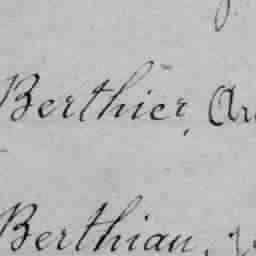 Berthier, Ar
Berthiau,